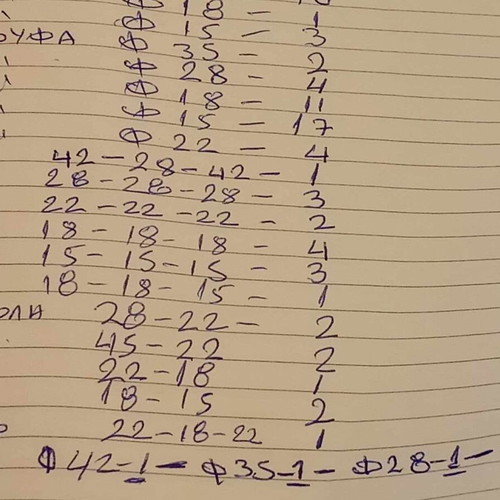 Ф 18 –
Ф 15 – 1
УФА Ф 35 – 3
Ф 28 – 2
Ф 18 – 4
Ф 15 – 11
Ф 22 – 17
42 – 28 – 42 – 4
28 – 28 – 28 – 1
22 – 22 – 22 – 3
18 – 18 – 18 – 2
15 – 15 – 15 – 4
18 – 18 – 15 – 3
28 – 22 – 1
45 – 22 2
22 – 18 2
18 – 15 1
22 – 18 – 22 2
1
Ф 42 – 1 – Ф 35 – 1 – Ф 28 – 1 –